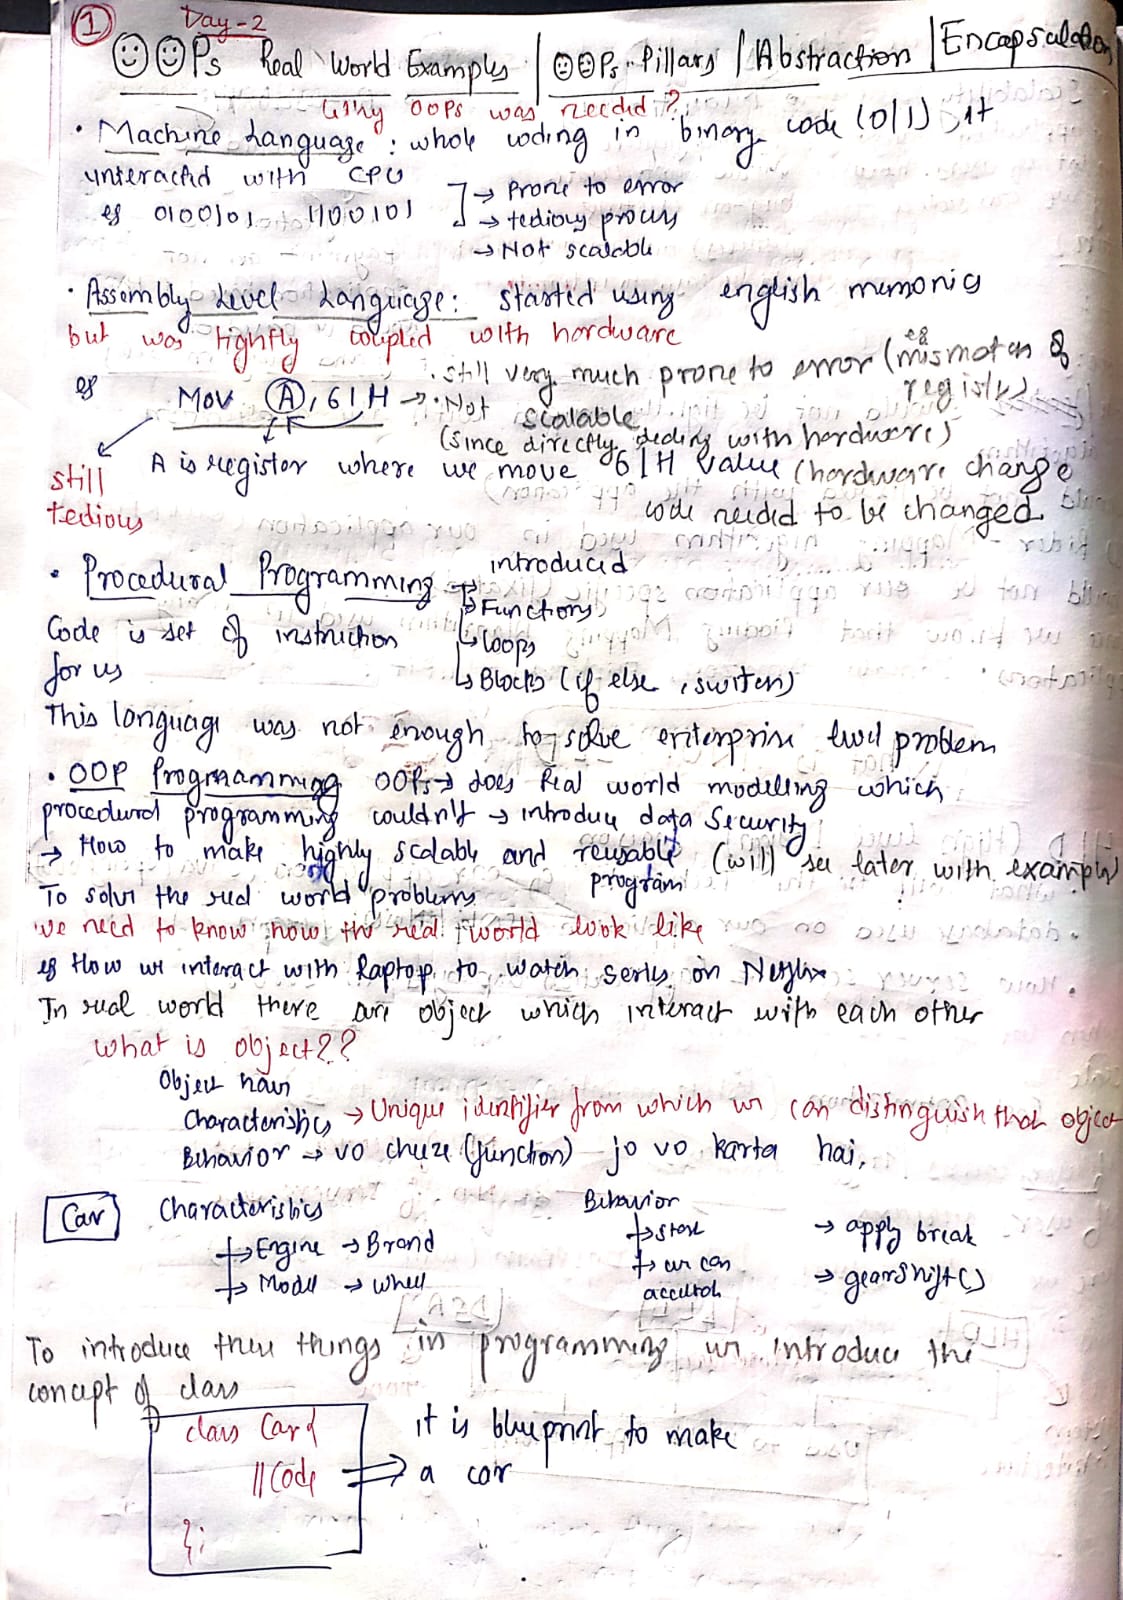 ① Day-2
OOPs Real World Examples | OOPs Pillars | Abstraction | Encapsulation
Why OOPs was needed?
• Machine Language : whole coding in binary code (0/1), it
interacted with CPU
eg 0100101 1100101
→ Prone to error
→ tedious process
→ Not scalable
• Assembly Level Language: started using english mnmonics
but was tightly coupled with hardware
eg MOV A, 61H → • still very much prone to error (eg mismatch of registers)
• Not scalable
(since directly dealing with hardware)
still tedious
A is register where we move 61H value (hardware change
code needed to be changed
• Procedural Programming introduced
→ Functions
→ Loops
→ Blocks (if else, switch)
Code is set of instruction
for us
This language was not enough to solve enterprise level problem
• OOP Programming OOPs → does Real world modelling which
procedural programming couldn't → introduce data security
→ How to make highly scalable and reusable program (will see later with example)
To solve the real world problems
we need to know how the real world look like
eg How we interact with laptop to watch series on Netflix
In real world there are object which interact with each other
What is object??
Object have
Characteristics → Unique identifier from which we can distinguish that object
Behavior → vo cheeze (function) jo vo karta hai,
Car Characteristics Behavior
→ Engine → Brand → start → apply break
→ Model → wheel → car can accelrate → gearShift()
To introduce these things in programming we introduce the
concept of class
class Car {
//Code
};
it is blueprint to make
a car